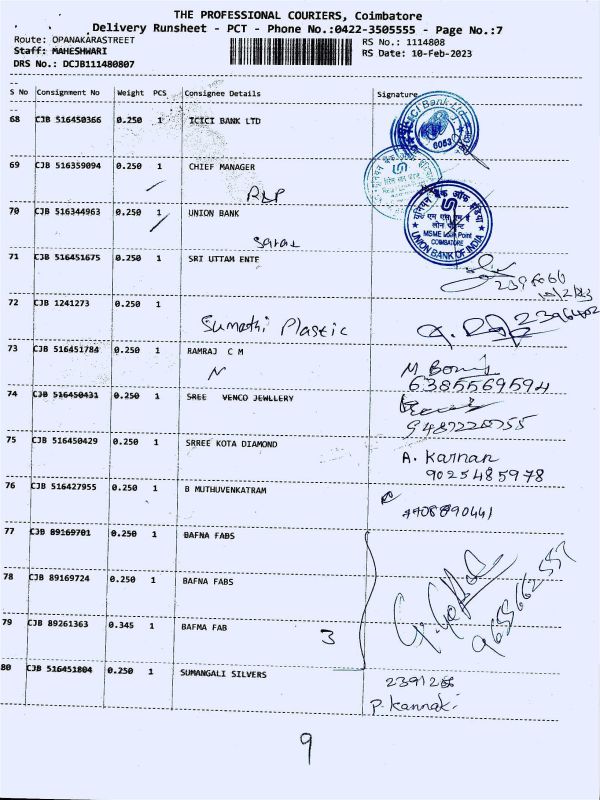 THE PROFESSIONAL COURIERS, Coimbatore
Delivery Runsheet - PCT - Phone No.:0422-3505555 - Page No.:7
Route: OPANAKARASTREET RS No.: 1114808
Staff: MAHESHWARI RS Date: 10-Feb-2023
DRS No.: DCJB111480807
S No Consignment No Weight PCS Consignee Details Signature
68 CJB 516450366 0.250 1 ICICI BANK LTD
ICICI Bank Ltd
6053
69 CJB 516359094 0.250 1 CHIEF MANAGER
70 CJB 516344963 0.250 1 UNION BANK
यूनियन बैंक ऑफ इंडिया
एम एस एम ई
लोन पॉइन्ट
MSME Loan Point
COIMBATORE
UNION BANK OF INDIA
71 CJB 516451675 0.250 1 SRI UTTAM ENTE
10/2/23
72 CJB 1241273 0.250 1
Sumathi Plastic 2396402
73 CJB 516451784 0.250 1 RAMRAJ C M
N
6385569594
74 CJB 516450431 0.250 1 SREE VENCO JEWLLERY
9487220755
75 CJB 516450429 0.250 1 SRREE KOTA DIAMOND A. Kannan
9025485978
76 CJB 516427955 0.250 1 B MUTHUVENKATRAM
77 CJB 89169701 0.250 1 BAFNA FABS
78 CJB 89169724 0.250 1 BAFNA FABS
79 CJB 89261363 0.345 1 BAFMA FAB
3
80 CJB 516451804 0.250 1 SUMANGALI SILVERS
P. Kannaki
9